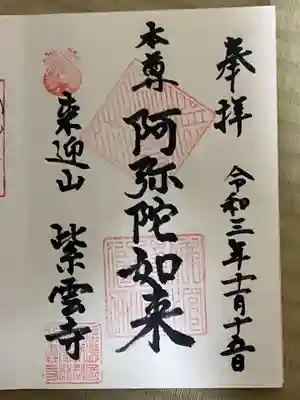 奉拝
令和三年十二月十五日
本尊
阿弥陀如来
来迎山
紫雲寺